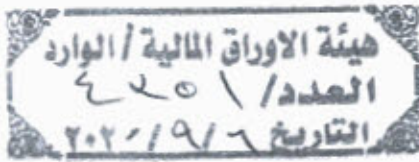 هيئة الاوراق المالية / الوارد
العدد/ ٤٢٥١
التاريخ ٦/٩/٢٠٢٠